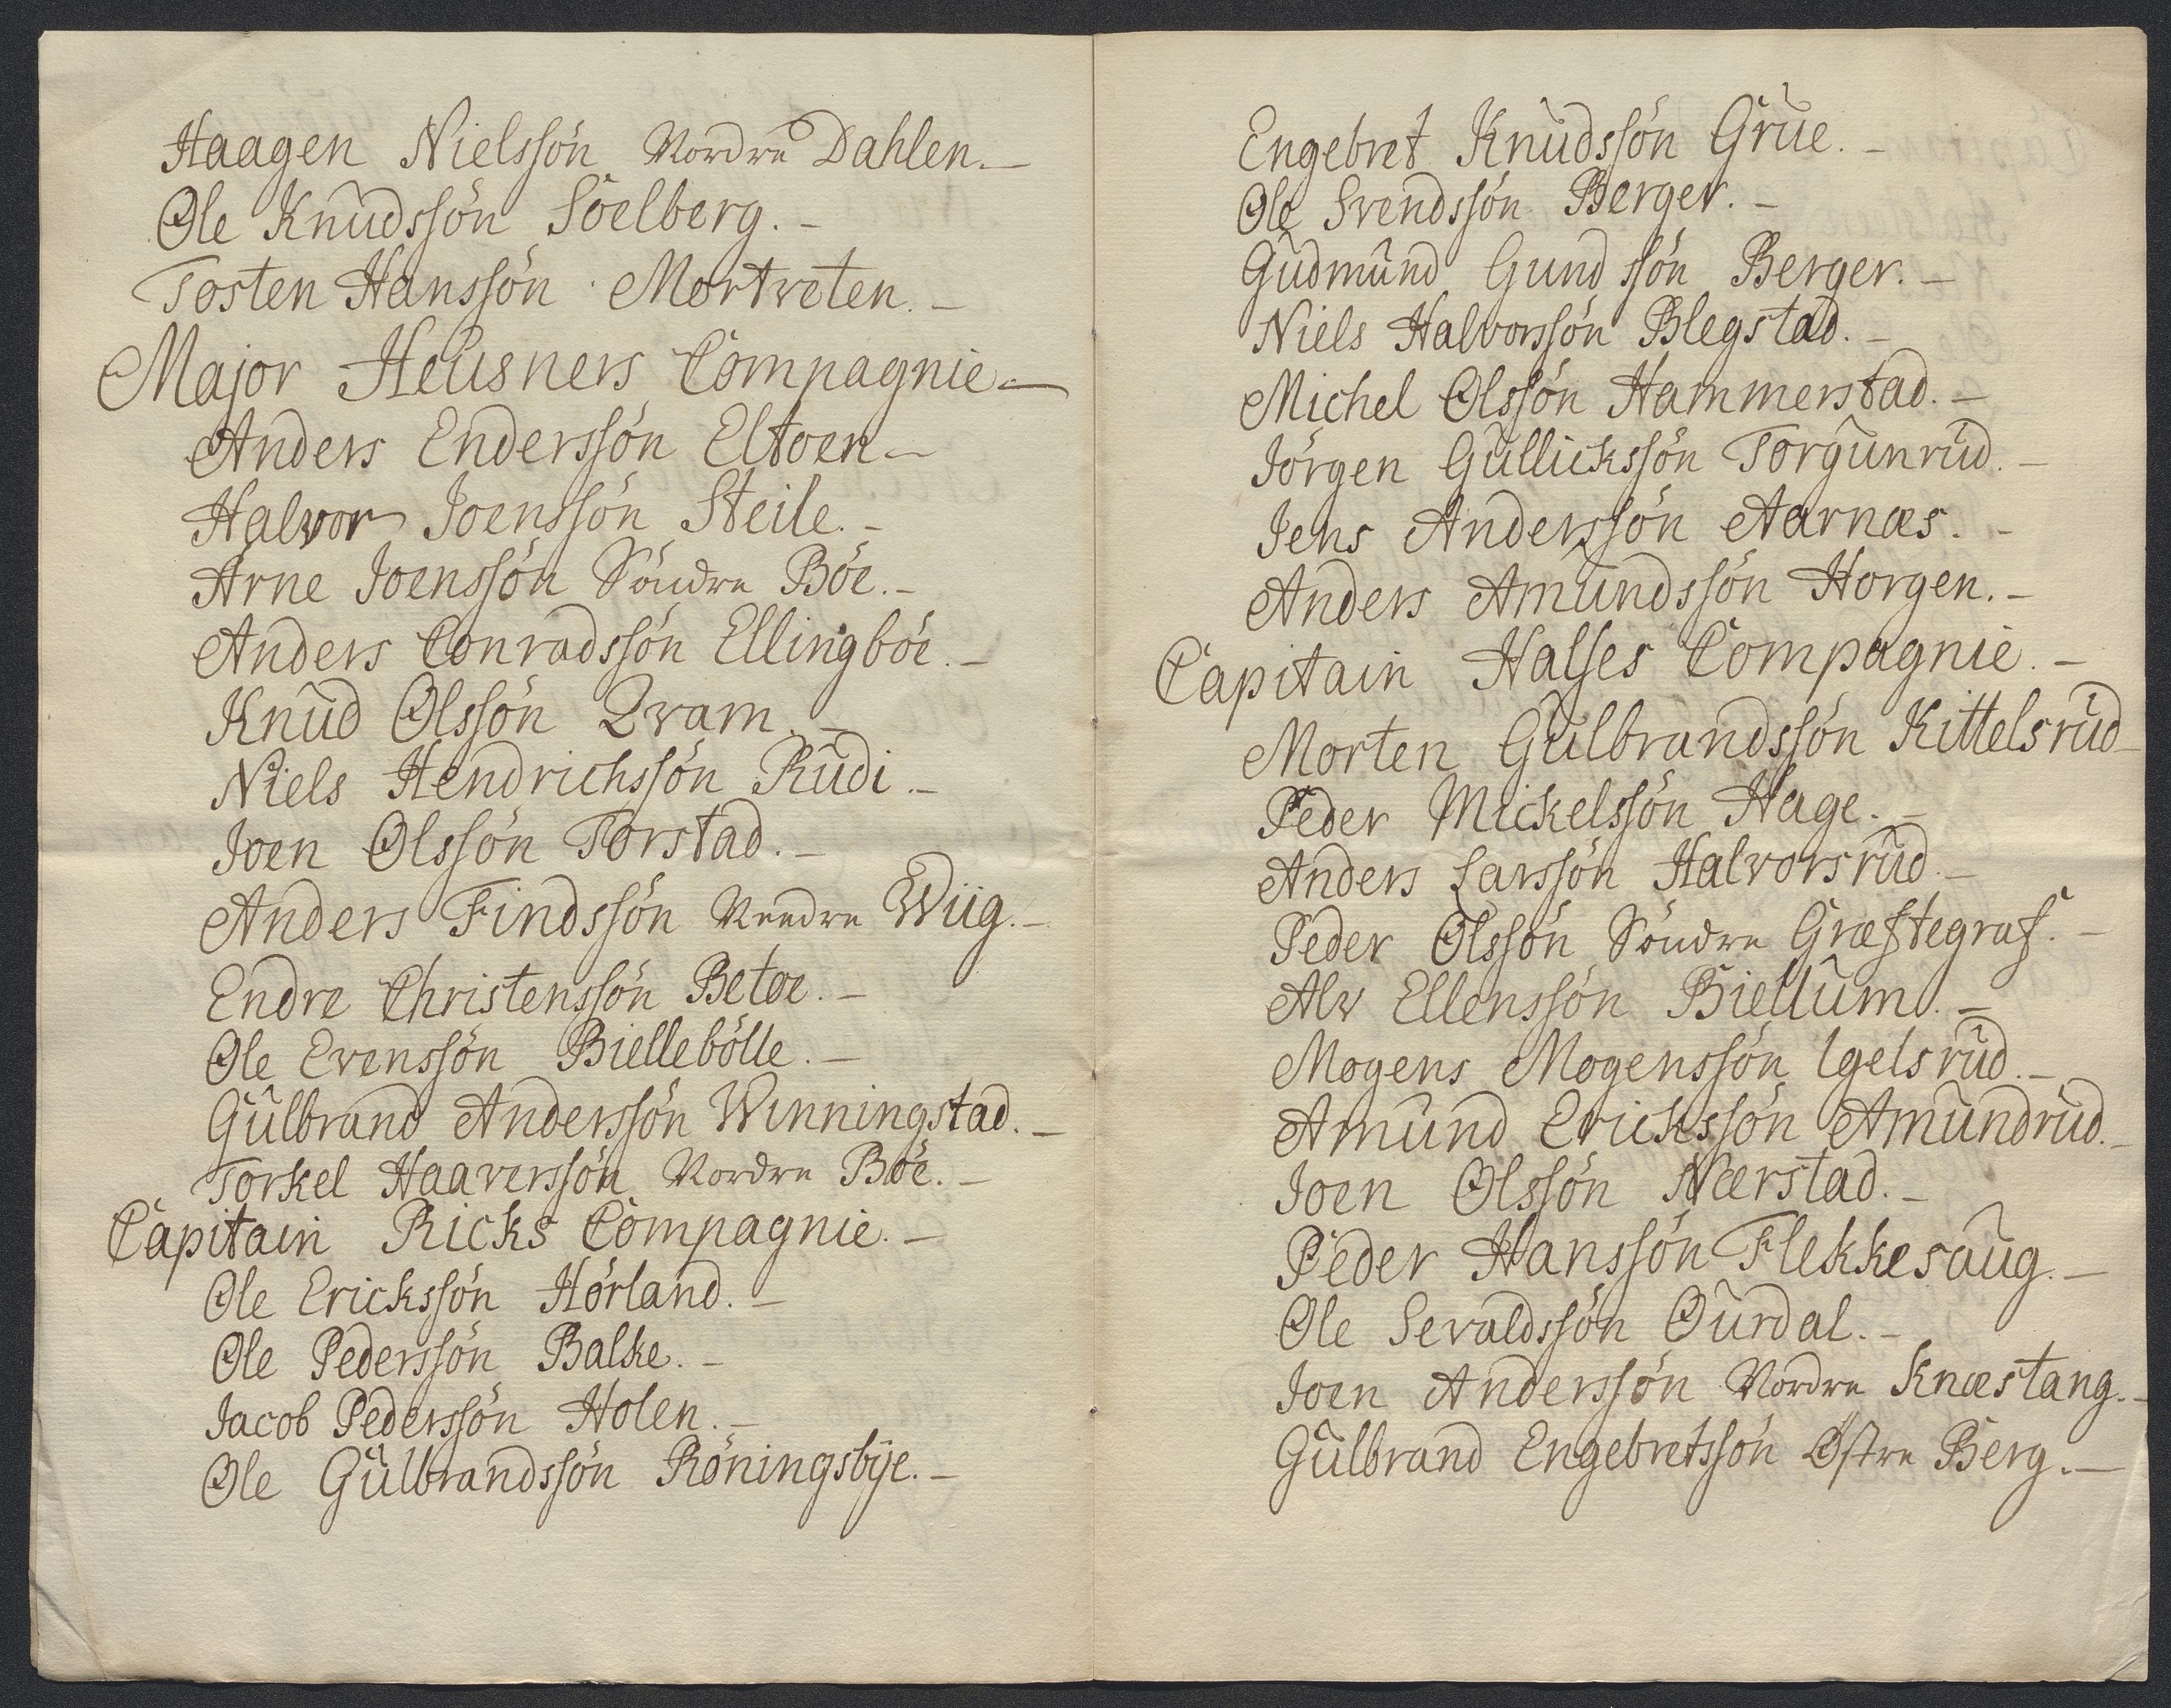 Haagen Nielssön Nordre Dahlen. –
Ole Knudssön Söelberg. –
Tosten Hanssön Mortveten. –
Major Heüsners Compagnie –
Anders Enderssön Eltoen –
Halvor Joenssön Steile. –
Arne Joenssön Söndre Böe. –
Anders Conradssön Ellingböe. –
Knud Olssön Qvam. –
Niels Hendrichssön Rudi. –
Joen Olssön Torstad. –
Anders Findssön Nedre Wiig. –
Endre Christenssön Betoe. –
Ole Evenssön Biellebölle. –
Gulbrand Anderssön Winningstad. –
Torkel Haaverssön Nordre Böe. –
Capitain Ricks Compagnie. –
Ole Erickssön Hörland. –
Ole Pederssön Balke. –
Jacob Pederssön Holen. –
Ole Gulbrandssön Röningsbÿe. –
Engebret Knudssön Grue. –
Ole Svendssön Berger. –
Gudmund Gundssön Berger. –
Niels Halvorssön Blegstad. –
Michel Olssön Hammerstad. –
Jörgen Gullickssön Torgunrud. –
Jens Anderssön Aarnæs. –
Anders Amundssön Horgen. –
Capitain Halses Compagnie. –
Morten Gulbrandssön Kittelsrud –
Peder Mickelssön Hage. –
Anders Larssön Halvorsrud. –
Peder Olssön Söndre Græftegraf. –
Alv Ellenssön Biellum. –
Mogens Mogenssön Igelsrud. –
Amund Erickssön Amundrud. –
Joen Olssön Nærstad. –
Peder Hanssön Flekkesaug. –
Ole Sevaldssön Ourdal. –
Joen Anderssön Nordre Knæstang. –
Gulbrand Engebretssön Østre Berg. –